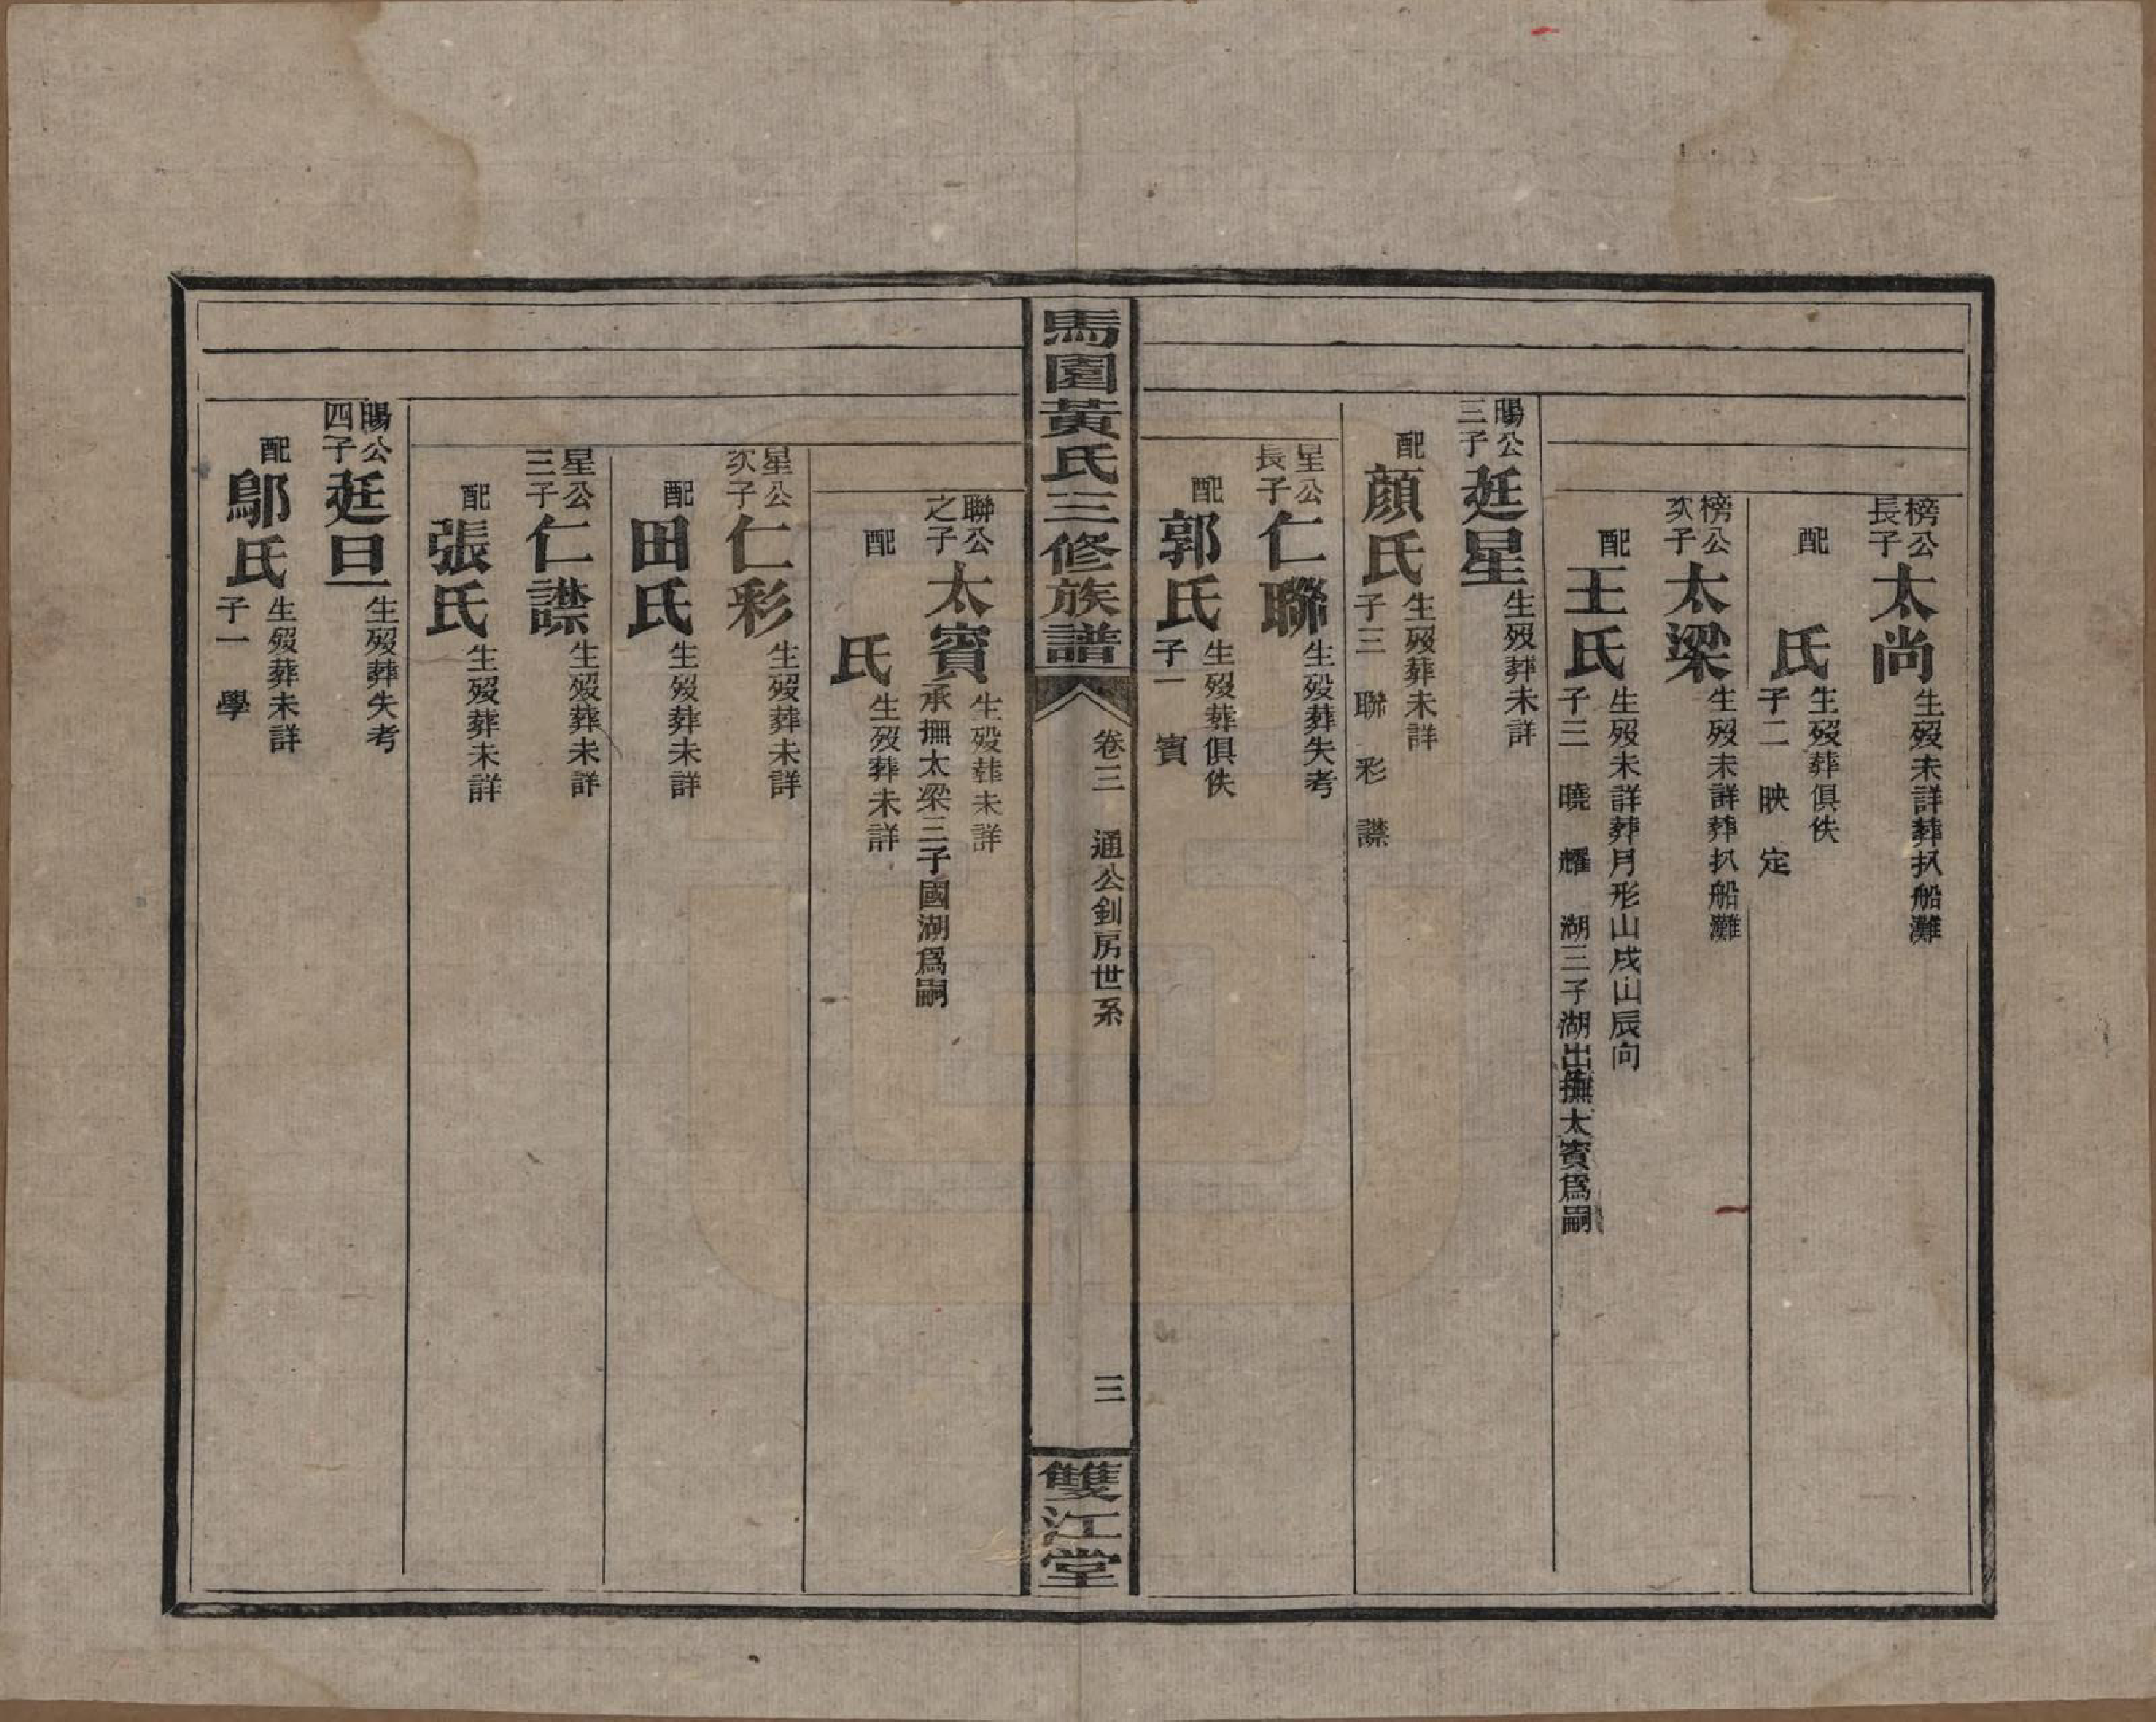 榜公長子太尚生歿未詳葬扒船灘
配　氏生歿葬俱佚子二　映　定
榜公次子太梁生歿未詳葬扒船灘
配王氏生歿未詳葬月形山戌山辰向子三　曉　耀　湖三子湖出撫太賓爲嗣
暘公三子廷星生歿葬未詳
配顏氏生歿葬未詳子三　聯　彩　㯲
星公長子仁聯生歿葬失考
配郭氏生歿葬俱佚子一　賓
馬園黃氏三修族譜
卷三　通公釗房世系
三
雙江堂
聯公之子太賓生歿葬未詳承撫太梁三子國湖爲嗣
配　氏生歿葬未詳
星公次子仁彩生歿葬未詳
配田氏生歿葬未詳
星公三子仁生歿葬未詳
配張氏生歿葬未詳
暘公四子廷旦生歿葬失考
配鄔氏生歿葬未詳子一　學